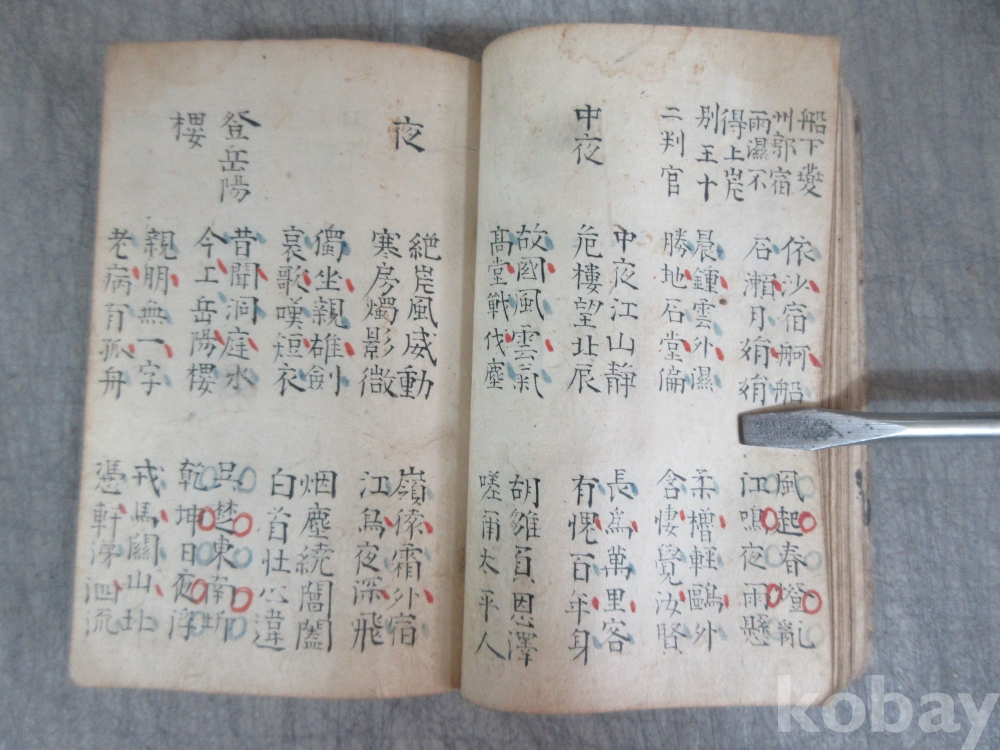 船下夔
州郭宿
雨濕不
得上岸
别王十
二判官
依沙宿舸船
石瀨月娟娟
風起春燈亂
江鳴夜雨懸
晨鍾雲外濕
勝地石堂偏
柔櫓輕鷗外
含悽覺汝賢
中夜
中夜江山靜
危樓望北辰
長爲萬里客
有愧百年身
故國風雲氣
高堂戰伐塵
胡雛負恩澤
嗟爾太平人
夜
絶岸風威動
寒房燭影微
嶺猿霜外宿
江鳥夜深飛
獨坐親雄劍
哀歌嘆短衣
烟塵繞閶闔
白首壯心違
登岳陽
樓
昔聞洞庭水
今上岳陽樓
吳楚東南坼
乾坤日夜浮
親朋無一字
老病有孤舟
戎馬關山北
憑軒涕泗流
kobay